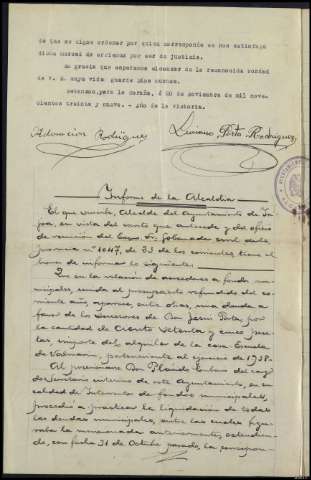 de que se digne ordenar por quien corresponda se nos satisfaga
dicha unidad de créditos por ser de justicia.
Es gracia que esperamos alcanzar de la reconocida bondad
de V. S. cuya vida guarde Dios muchos.
Betanzos, para la Coruña, á 20 de noviembre de mil nove-
cientos treinta y nueve. - Año de la Victoria.
Adoración Rodríguez
Luciano Porto Rodríguez
Informe de la Alcaldía
El que suscribe, Alcalde del Ayuntamiento de
en vista del escrito que antecede y del oficio
de remisión del Excmo. Sr. Gobernador civil de la
provincia nº 1047, de 23 de los corrientes, tiene el
honor de informar lo siguiente:
Que en la relación de acreedores a fondos mu-
nicipales, unida al presupuesto refundido del co-
rriente año, aparece, entre otras, una deuda a
favor de los herederos de Don Jesús Porto, por
la cantidad de ciento setenta y cinco pese-
tas, importe del alquiler de la casa Escuela
de perteneciente al ejercicio de 1938.-
Al posesionarse Don Plácido del car-
go de Secretario interino de este Ayuntamiento, en su
calidad de Interventor de fondos municipales,
procedió a practicar la liquidación de todas
las deudas municipales, entre las cuales figu-
raba la mencionada anteriormente, extendien-
do, con fecha 31 de Octubre pasado, la correspon-